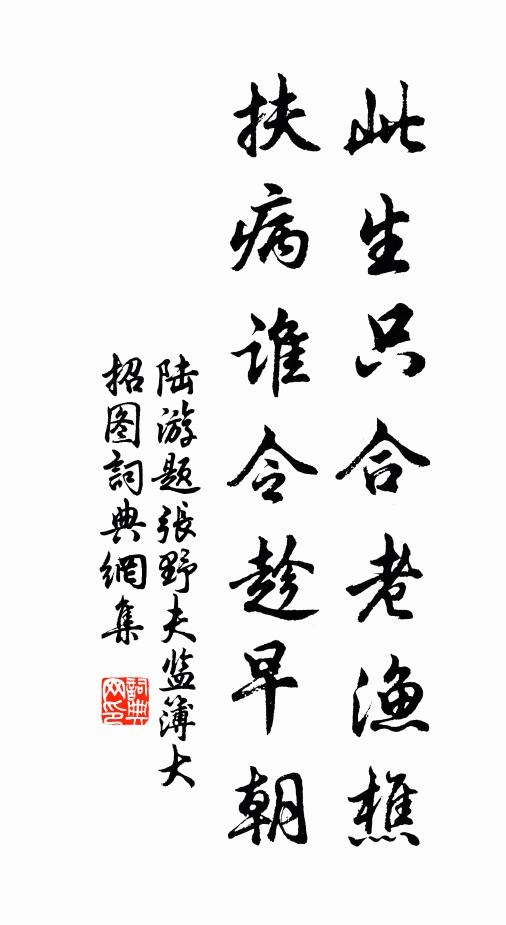 此生只合老漁樵
扶病誰令趁早朝
陆游题張野夫监簿大
招图詞典網集
詞典
网印